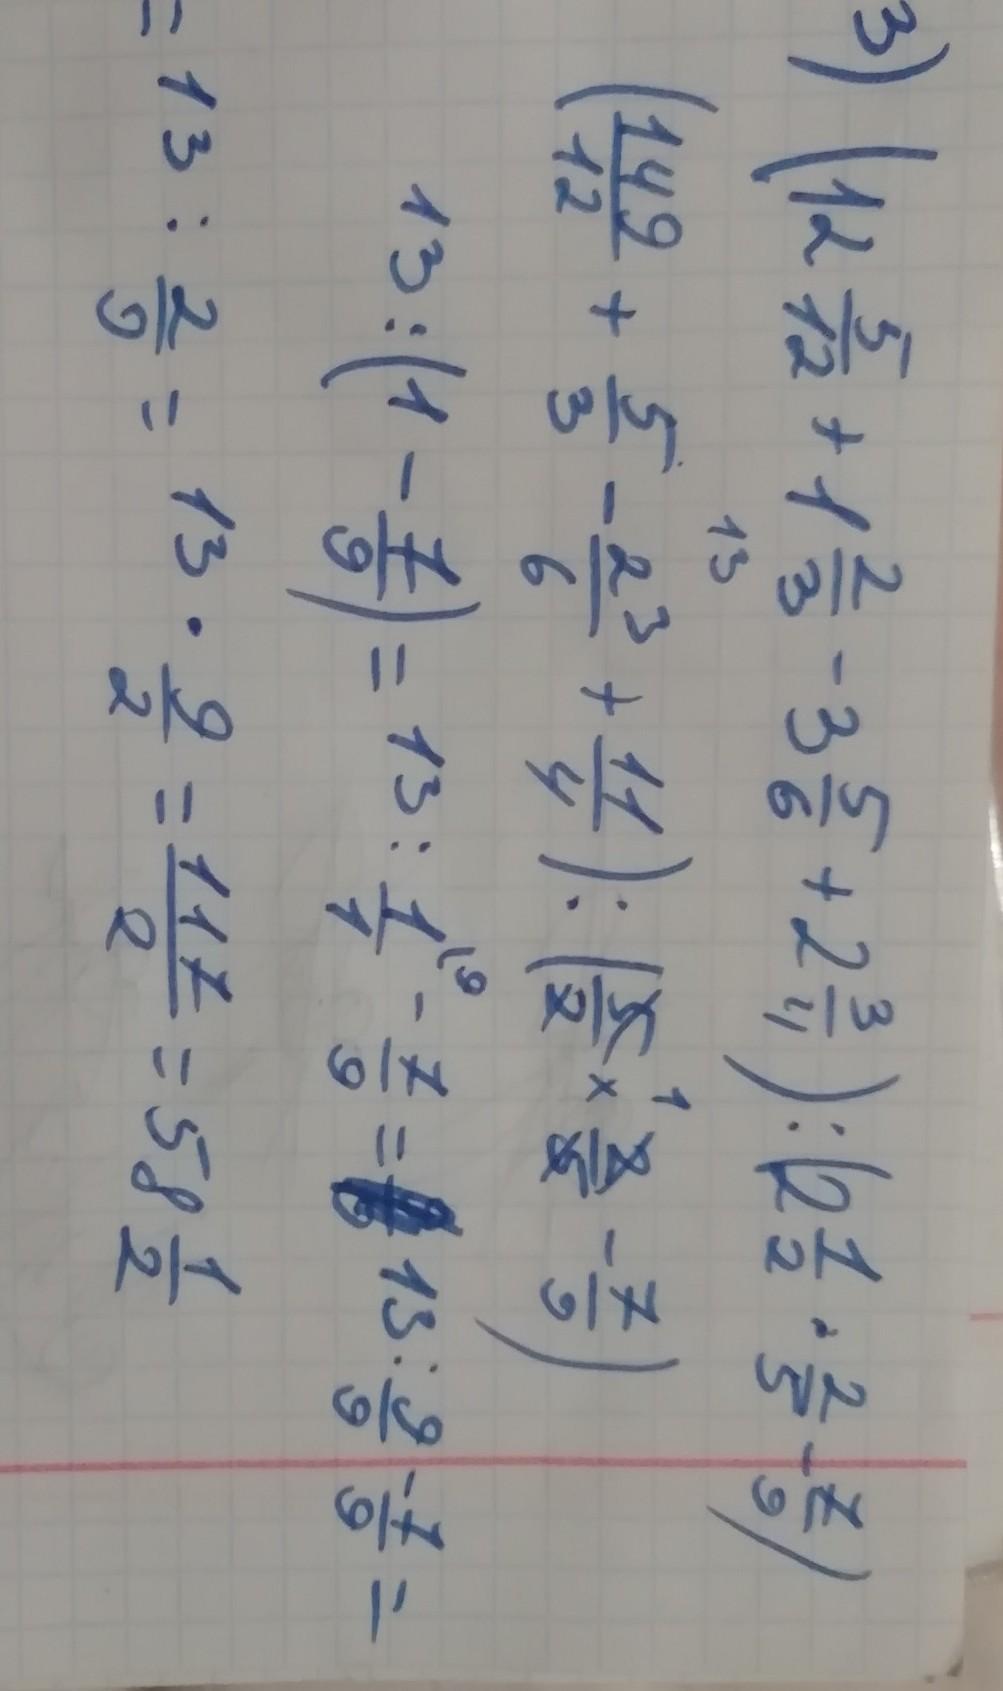 3) (12 5/12 + 1 2/3 - 3 5/6 + 2 3/4) : (2 1/2 · 2/5 - 7/9)
13
(149/12 + 5/3 - 23/6 + 11/4) : (5/2 × 2/5 - 7/9)
1
13 : (1 - 7/9) = 13 : 1/1 \9 - 7/9 = 13 : 9/9 - 7/9 =
= 13 : 2/9 = 13 · 9/2 = 117/2 = 58 1/2